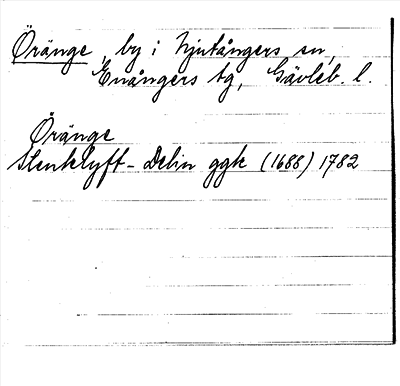 Öränge, by i Njutångers sn,
Enångers tg, Gävleb. l.
Öränge
Stenklyft - Delin ggk (1688) 1782